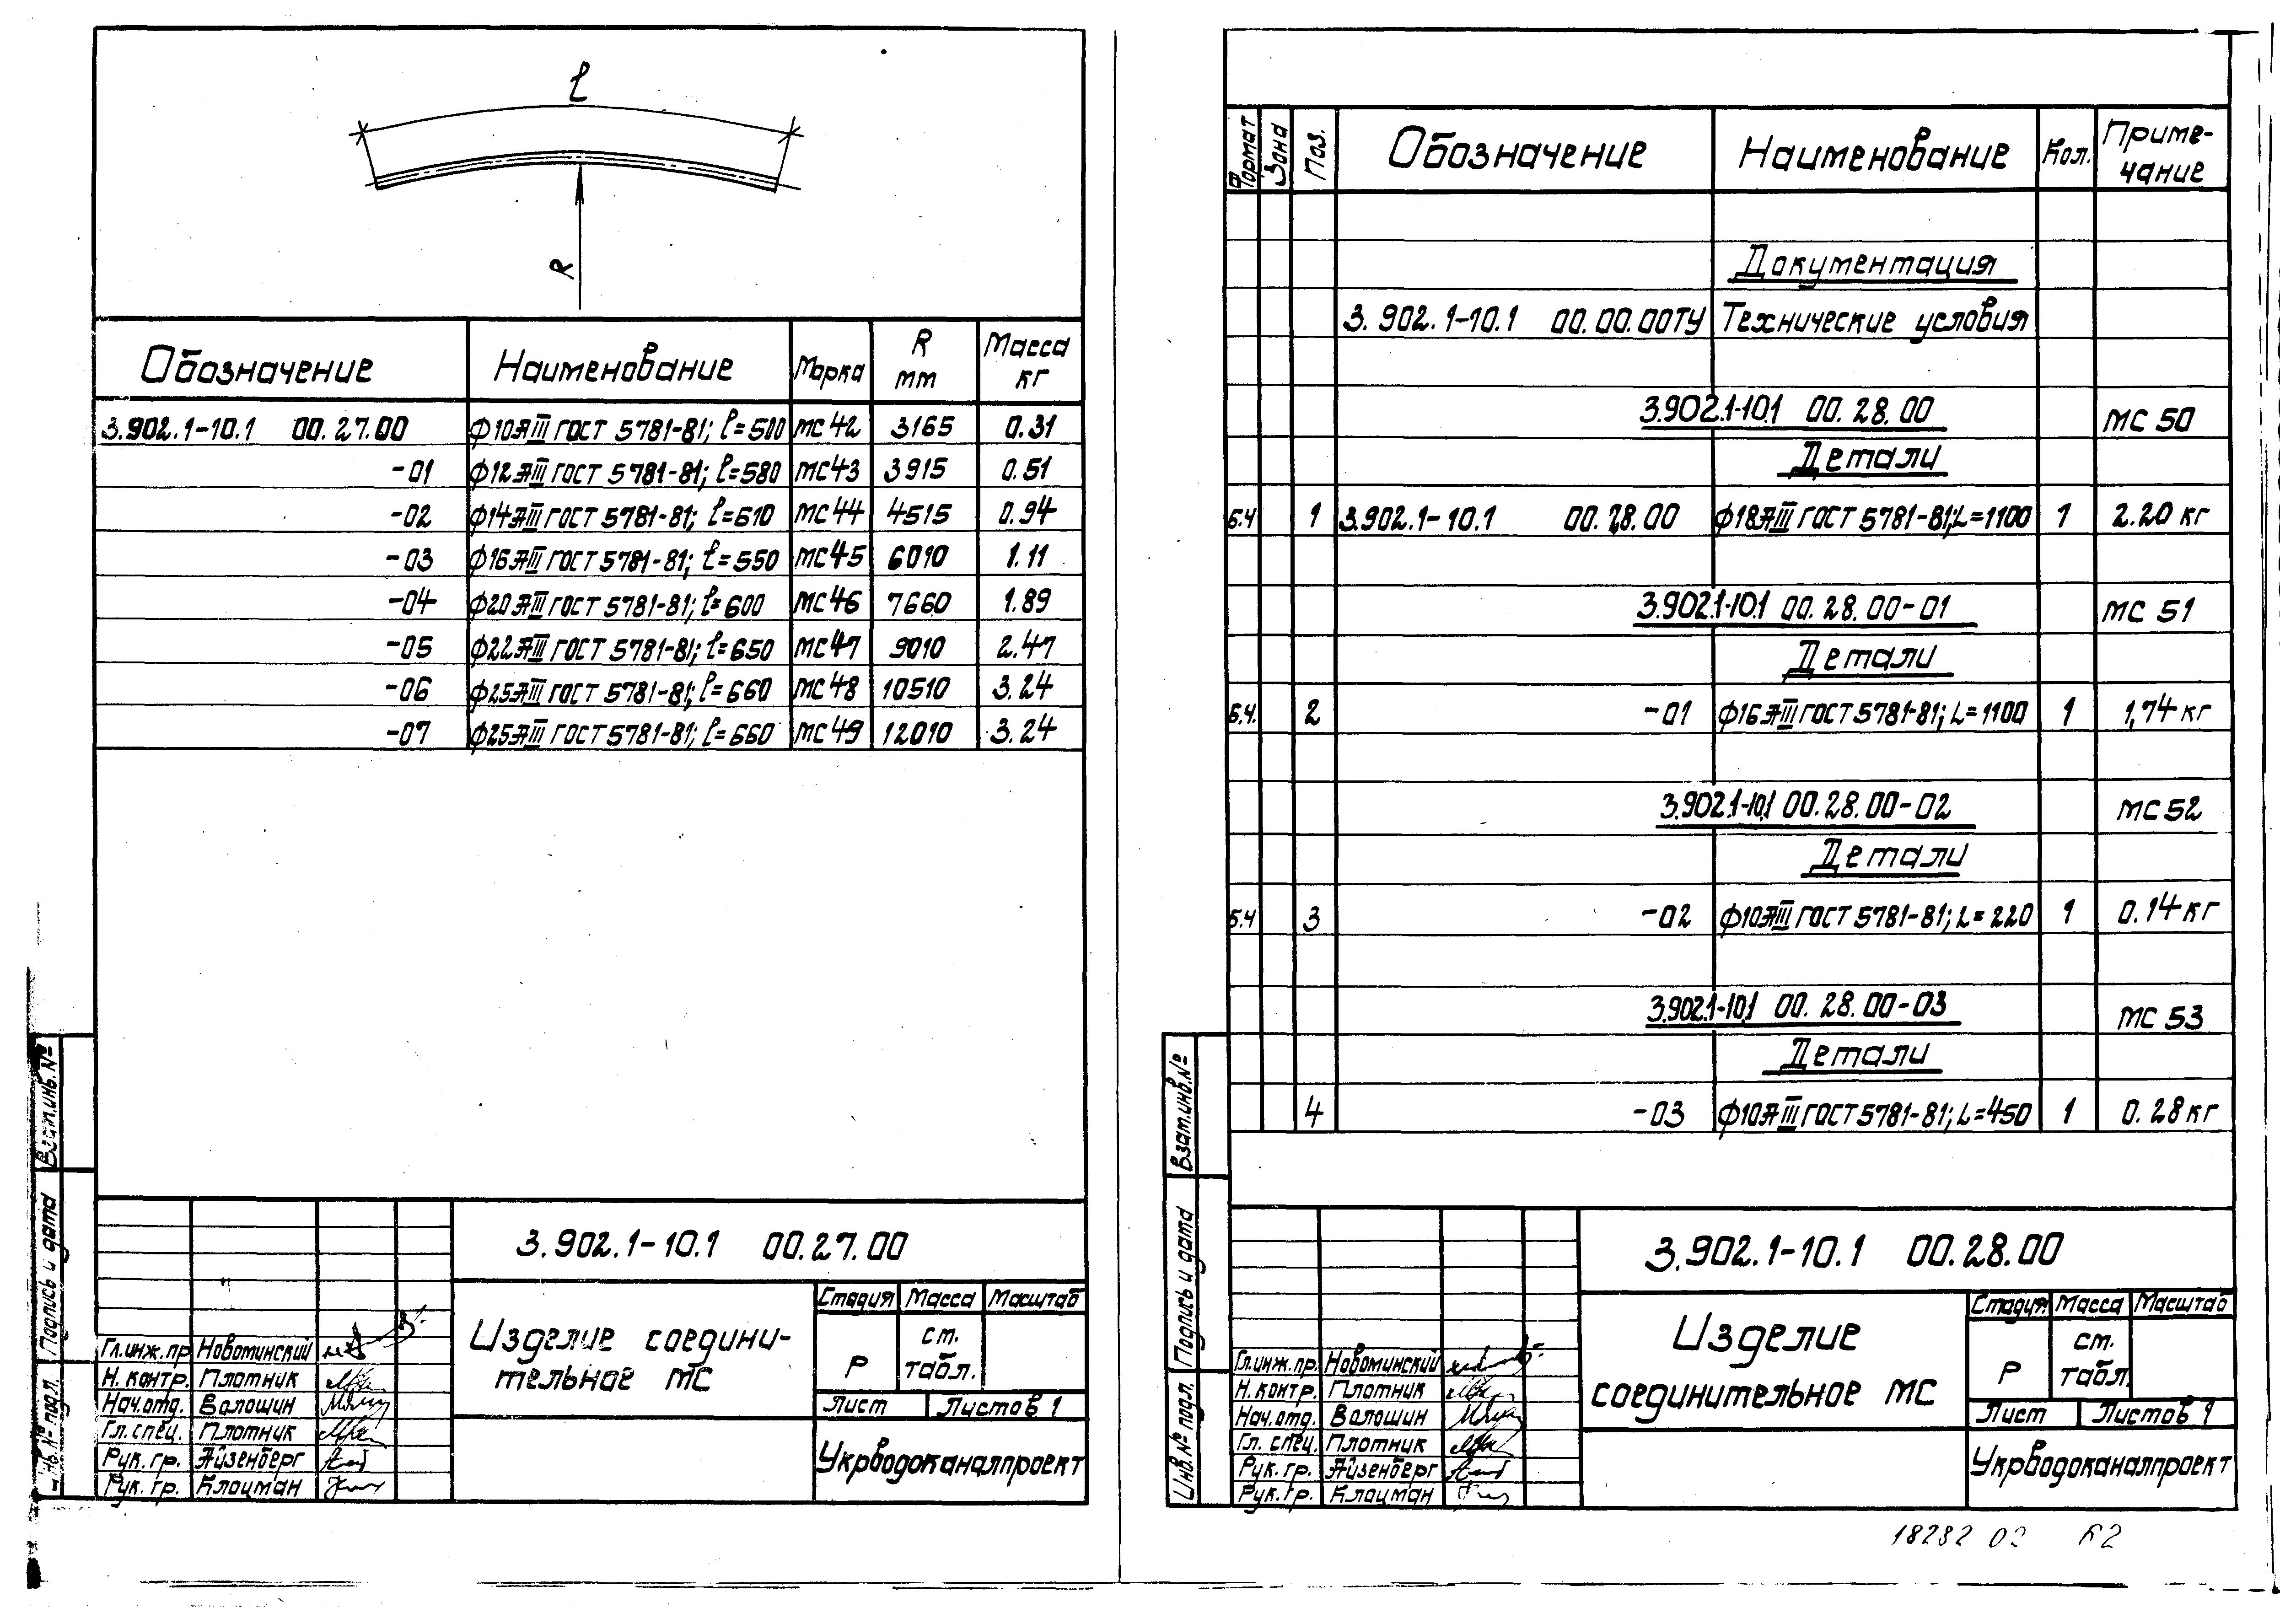 l
R
Обозначение Наименование Марка R мм Масса кг
3.902.1-10.1 00.27.00 ф10АIII ГОСТ 5781-81; l=500 МС42 3165 0.31
-01 ф12АIII ГОСТ 5781-81; l=580 МС43 3915 0.51
-02 ф14АIII ГОСТ 5781-81; l=610 МС44 4515 0.94
-03 ф16АIII ГОСТ 5781-81; l=550 МС45 6010 1.11
-04 ф20АIII ГОСТ 5781-81; l=600 МС46 7660 1.89
-05 ф22АIII ГОСТ 5781-81; l=650 МС47 9010 2.47
-06 ф25АIII ГОСТ 5781-81; l=660 МС48 10510 3.24
-07 ф25АIII ГОСТ 5781-81; l=660 МС49 12010 3.24
Взам.инв.№
Подпись и дата
Инв.№ подл.
3.902.1-10.1 00.27.00
Изделие соедини-
тельное МС
Стадия Масса Масштаб
Р ст. табл.
Лист Листов 1
Укрводоканалпроект
Гл.инж.пр Новоминский
Н. контр. Плотник
Нач.отд. Волошин
Гл. спец. Плотник
Рук. гр. Айзенберг
Рук. гр. Клоцман
Формат Зона Поз. Обозначение Наименование Кол. Приме-
чание
Документация
3.902.1-10.1 00.00.00ТУ Технические условия
3.902.1-10.1 00.28.00 МС 50
Детали
Б.Ч 1 3.902.1-10.1 00.28.00 ф18АIII ГОСТ 5781-81; L=1100 1 2.20 кг
3.902.1-10.1 00.28.00-01 МС 51
Детали
Б.Ч. 2 -01 ф16АIII ГОСТ 5781-81; L=1100 1 1,74 кг
3.902.1-10.1 00.28.00-02 МС 52
Детали
Б.Ч 3 -02 ф10АIII ГОСТ 5781-81; L=220 1 0.14 кг
3.902.1-10.1 00.28.00-03 МС 53
Детали
4 -03 ф10АIII ГОСТ 5781-81; L=450 1 0.28 кг
Взам.инв.№
Подпись и дата
Инв.№ подл.
3.902.1-10.1 00.28.00
Изделие
соединительное МС
Стадия Масса Масштаб
Р ст. табл.
Лист Листов 1
Укрводоканалпроект
Гл.инж.пр. Новоминский
Н.контр. Плотник
Нач.отд. Волошин
Гл. спец. Плотник
Рук. гр. Айзенберг
Рук. гр. Клоцман
18282 62